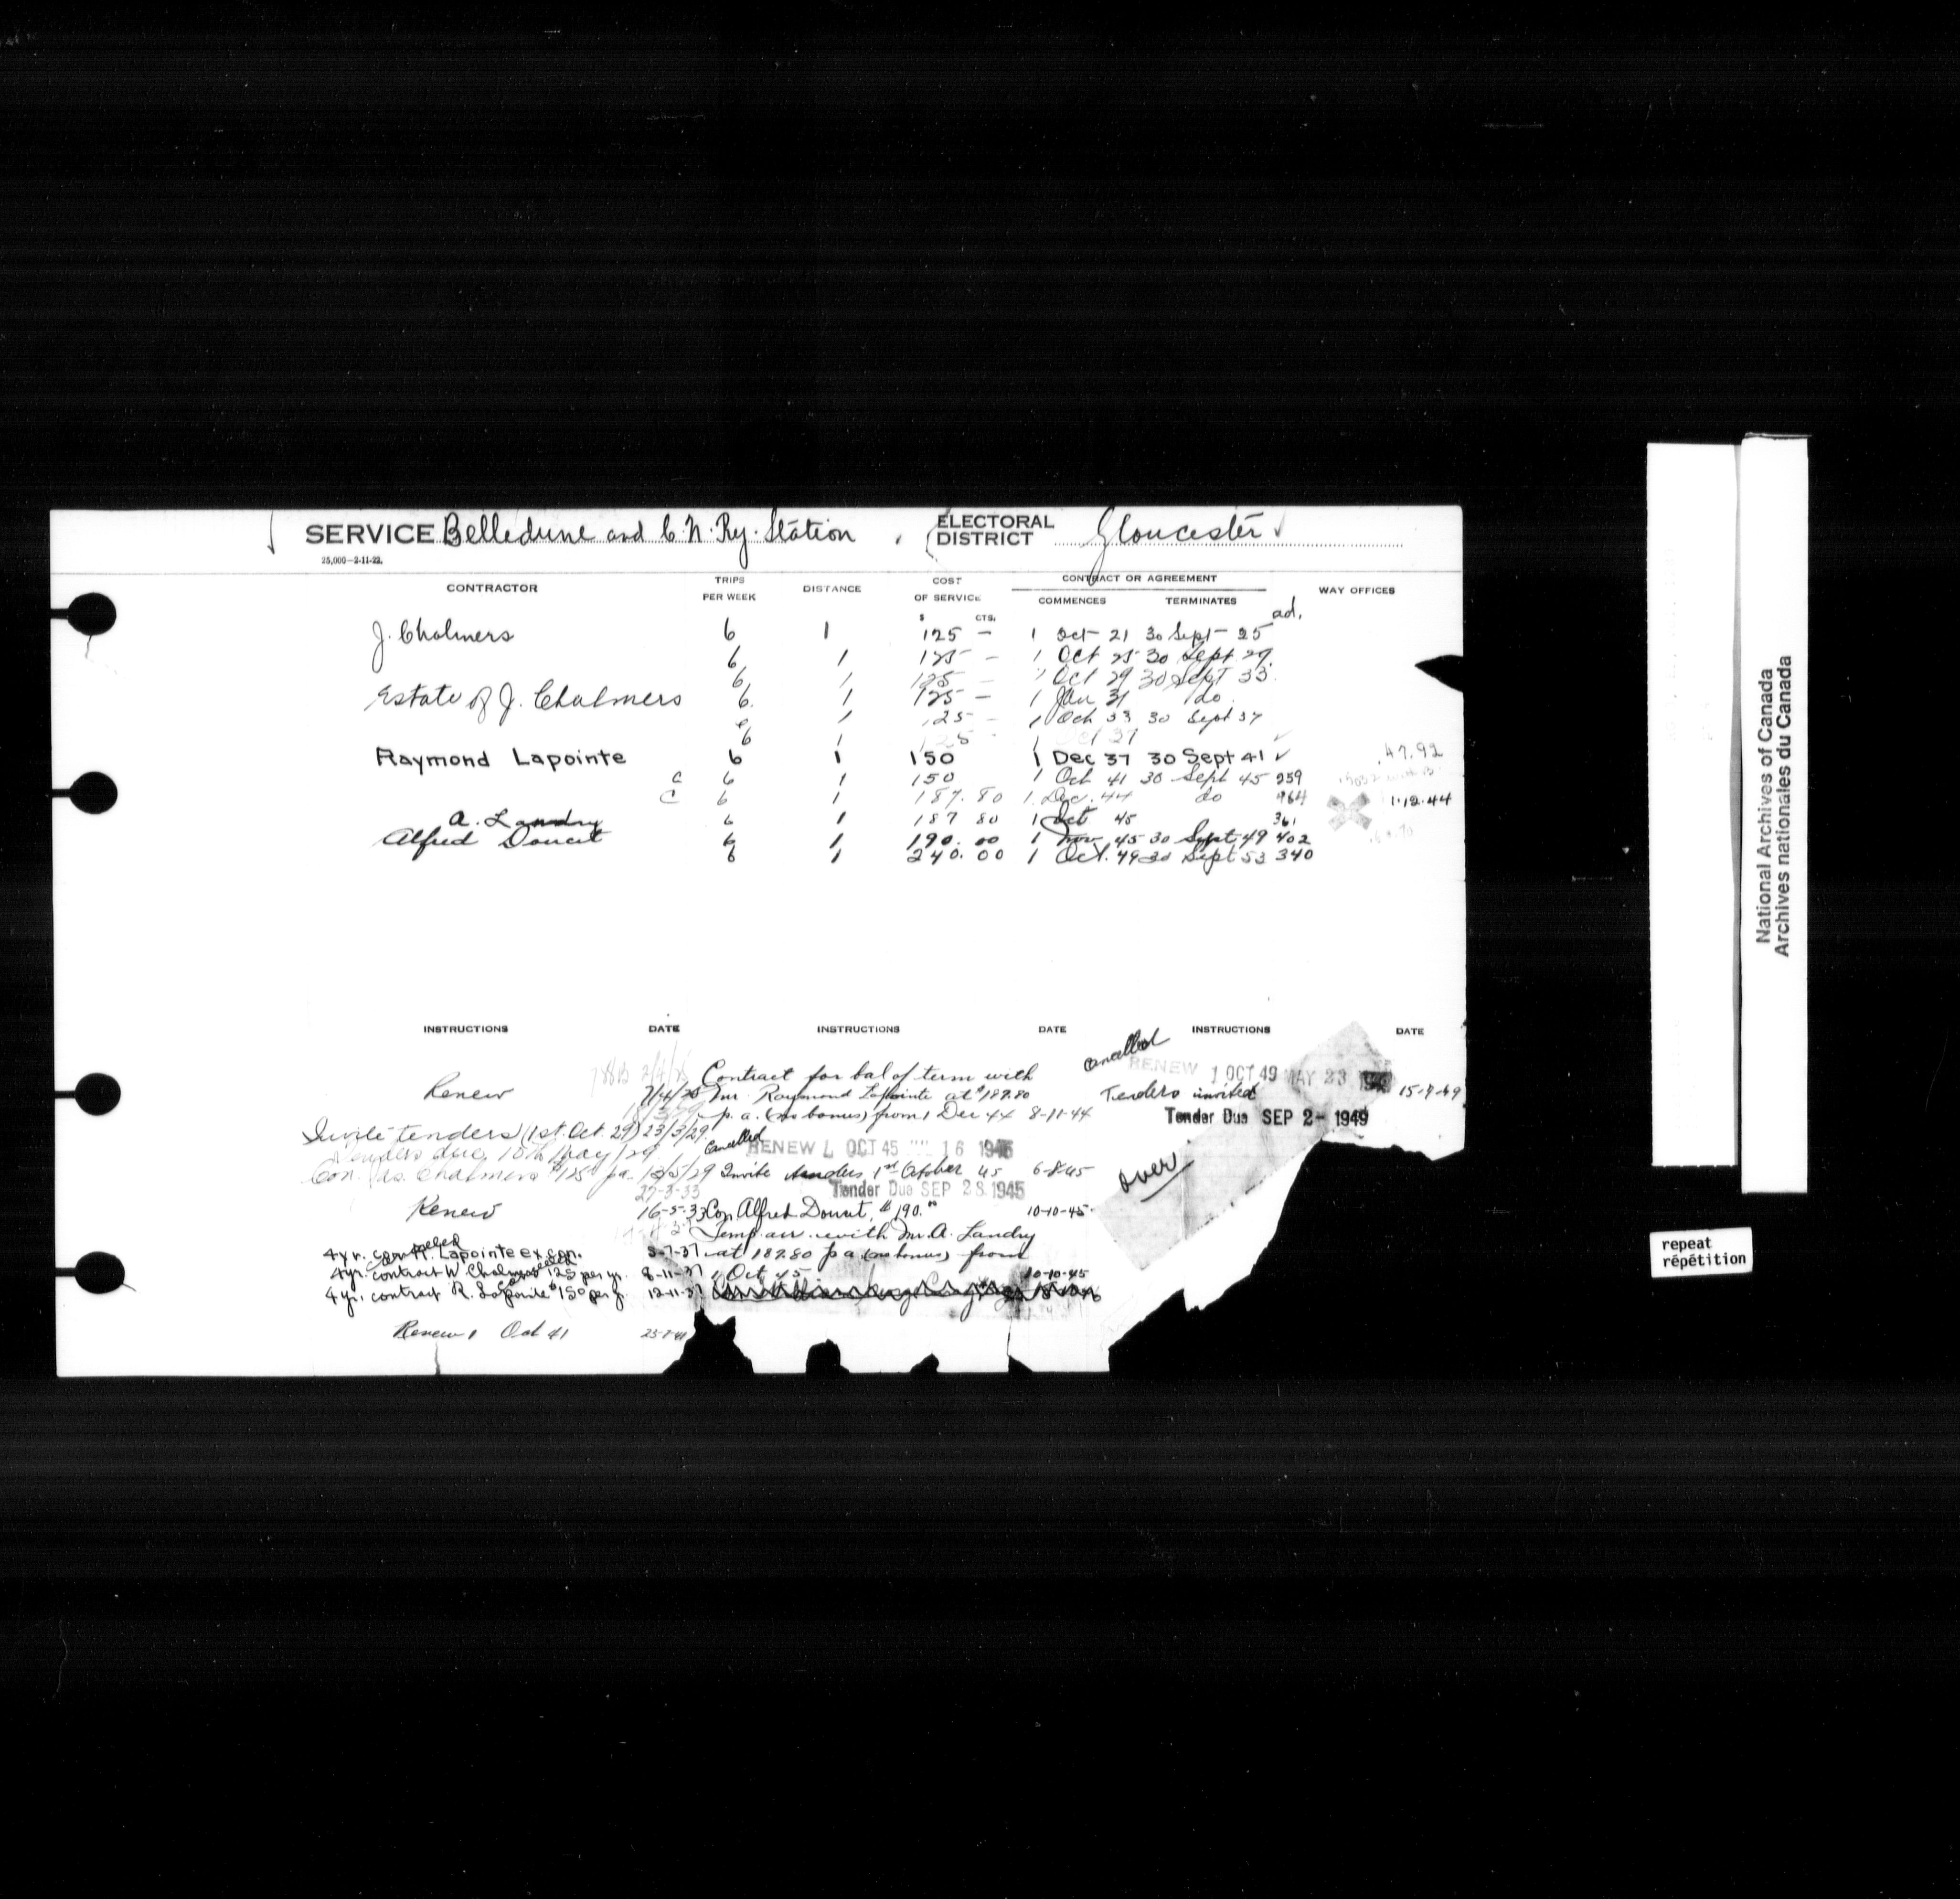 SERVICE Belledune and C.N. Ry. Station , ELECTORAL DISTRICT Gloucester
25,000—2-11-22.
CONTRACTOR TRIPS PER WEEK DISTANCE COST OF SERVICE CONTRACT OR AGREEMENT COMMENCES TERMINATES WAY OFFICES
$ CTS. ad.
J. Chalmers 6 1 125 — 1 Oct 21 30 Sept 25
6 1 125 — 1 Oct 25 30 Sept 29
6 1 125 — 1 Oct 29 30 Sept 33
Estate of J. Chalmers 6 1 125 — 1 Jan 31 do
6 1 125 — 1 Oct 33 30 Sept 37
6 1 125 1 Oct 37
Raymond Lapointe 6 1 150 1 Dec 37 30 Sept 41 ✓ 47.92
c 6 1 150 1 Oct 41 30 Sept 45 259
c 6 1 187.80 1 Dec. 44 do 464 1.12.44
A. Landry 6 1 187 80 1 Oct 45 361
Alfred Doucet 6 1 190.00 1 Nov. 45 30 Sept 49 402
6 1 240.00 1 Oct. 49 30 Sept 53 340
INSTRUCTIONS DATE INSTRUCTIONS DATE INSTRUCTIONS DATE
Renew 7/4/25
Invite tenders (1st. Oct. 29) 23/3/29
Tenders due 10th May/29
Con. Jas. Chalmers $125 pa. 13/5/29
27-3-33
Renew 16-5-33
4 yr. con. R. Lapointe ex con. 5-7-37
cancelled
4 yr. contract W Chalmers 125 per yr. 8-11-37
cancelled
4 yr. contract R. Lapointe $150 per yr. 12-11-37
Renew 1 Oct 41
Contract for bal of term with
Mr. Raymond Lapointe at $187.80
p.a. (no bonus) from 1 Dec 44 8-11-44
cancelled
RENEW 1 OCT 45 16 1945
Invite tenders 1st October 45 6-8-45
Tender Due SEP 28 1945
Con Alfred Doucet, $190.00 10-10-45
Temp. arr. with Mr. A. Landry
at 187.80 p a (no bonus) from
1 Oct 45 10-10-45
cancelled
RENEW 1 OCT 49 MAY 23
Tenders invited 15-7-49
Tender Due SEP 2- 1949
over
National Archives of Canada
Archives nationales du Canada
repeat
répétition